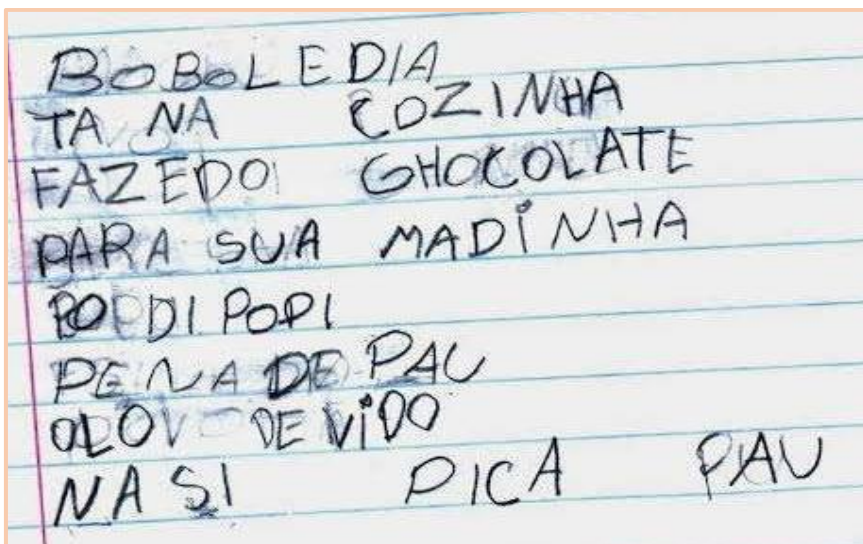 BOBOLEDIA
TA NA COZINHA
FAZEDO GHOCOLATE
PARA SUA MADINHA
PO DI POPI
PENA DE PAU
OLO DE VIDO
NASI PICA PAU